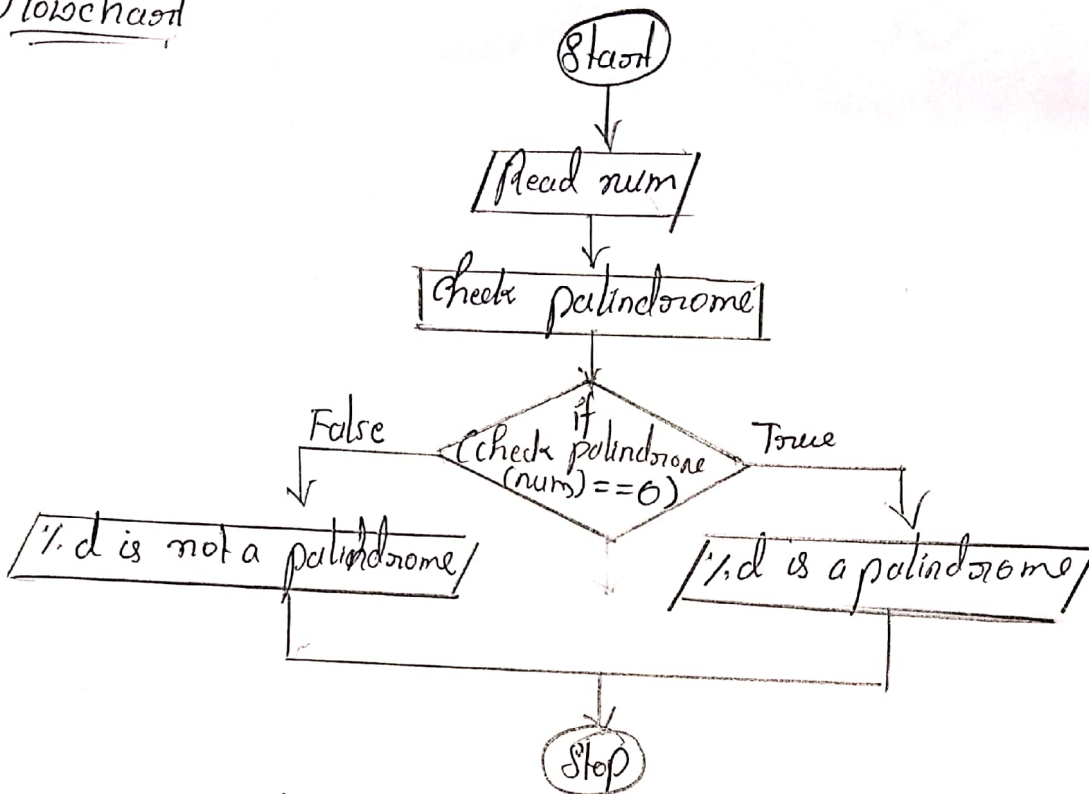 Flowchart
Start
Read num
Check palindrome
if
(check palindrome
(num) == 0)
False
True
%d is not a palindrome
%d is a palindrome
Stop